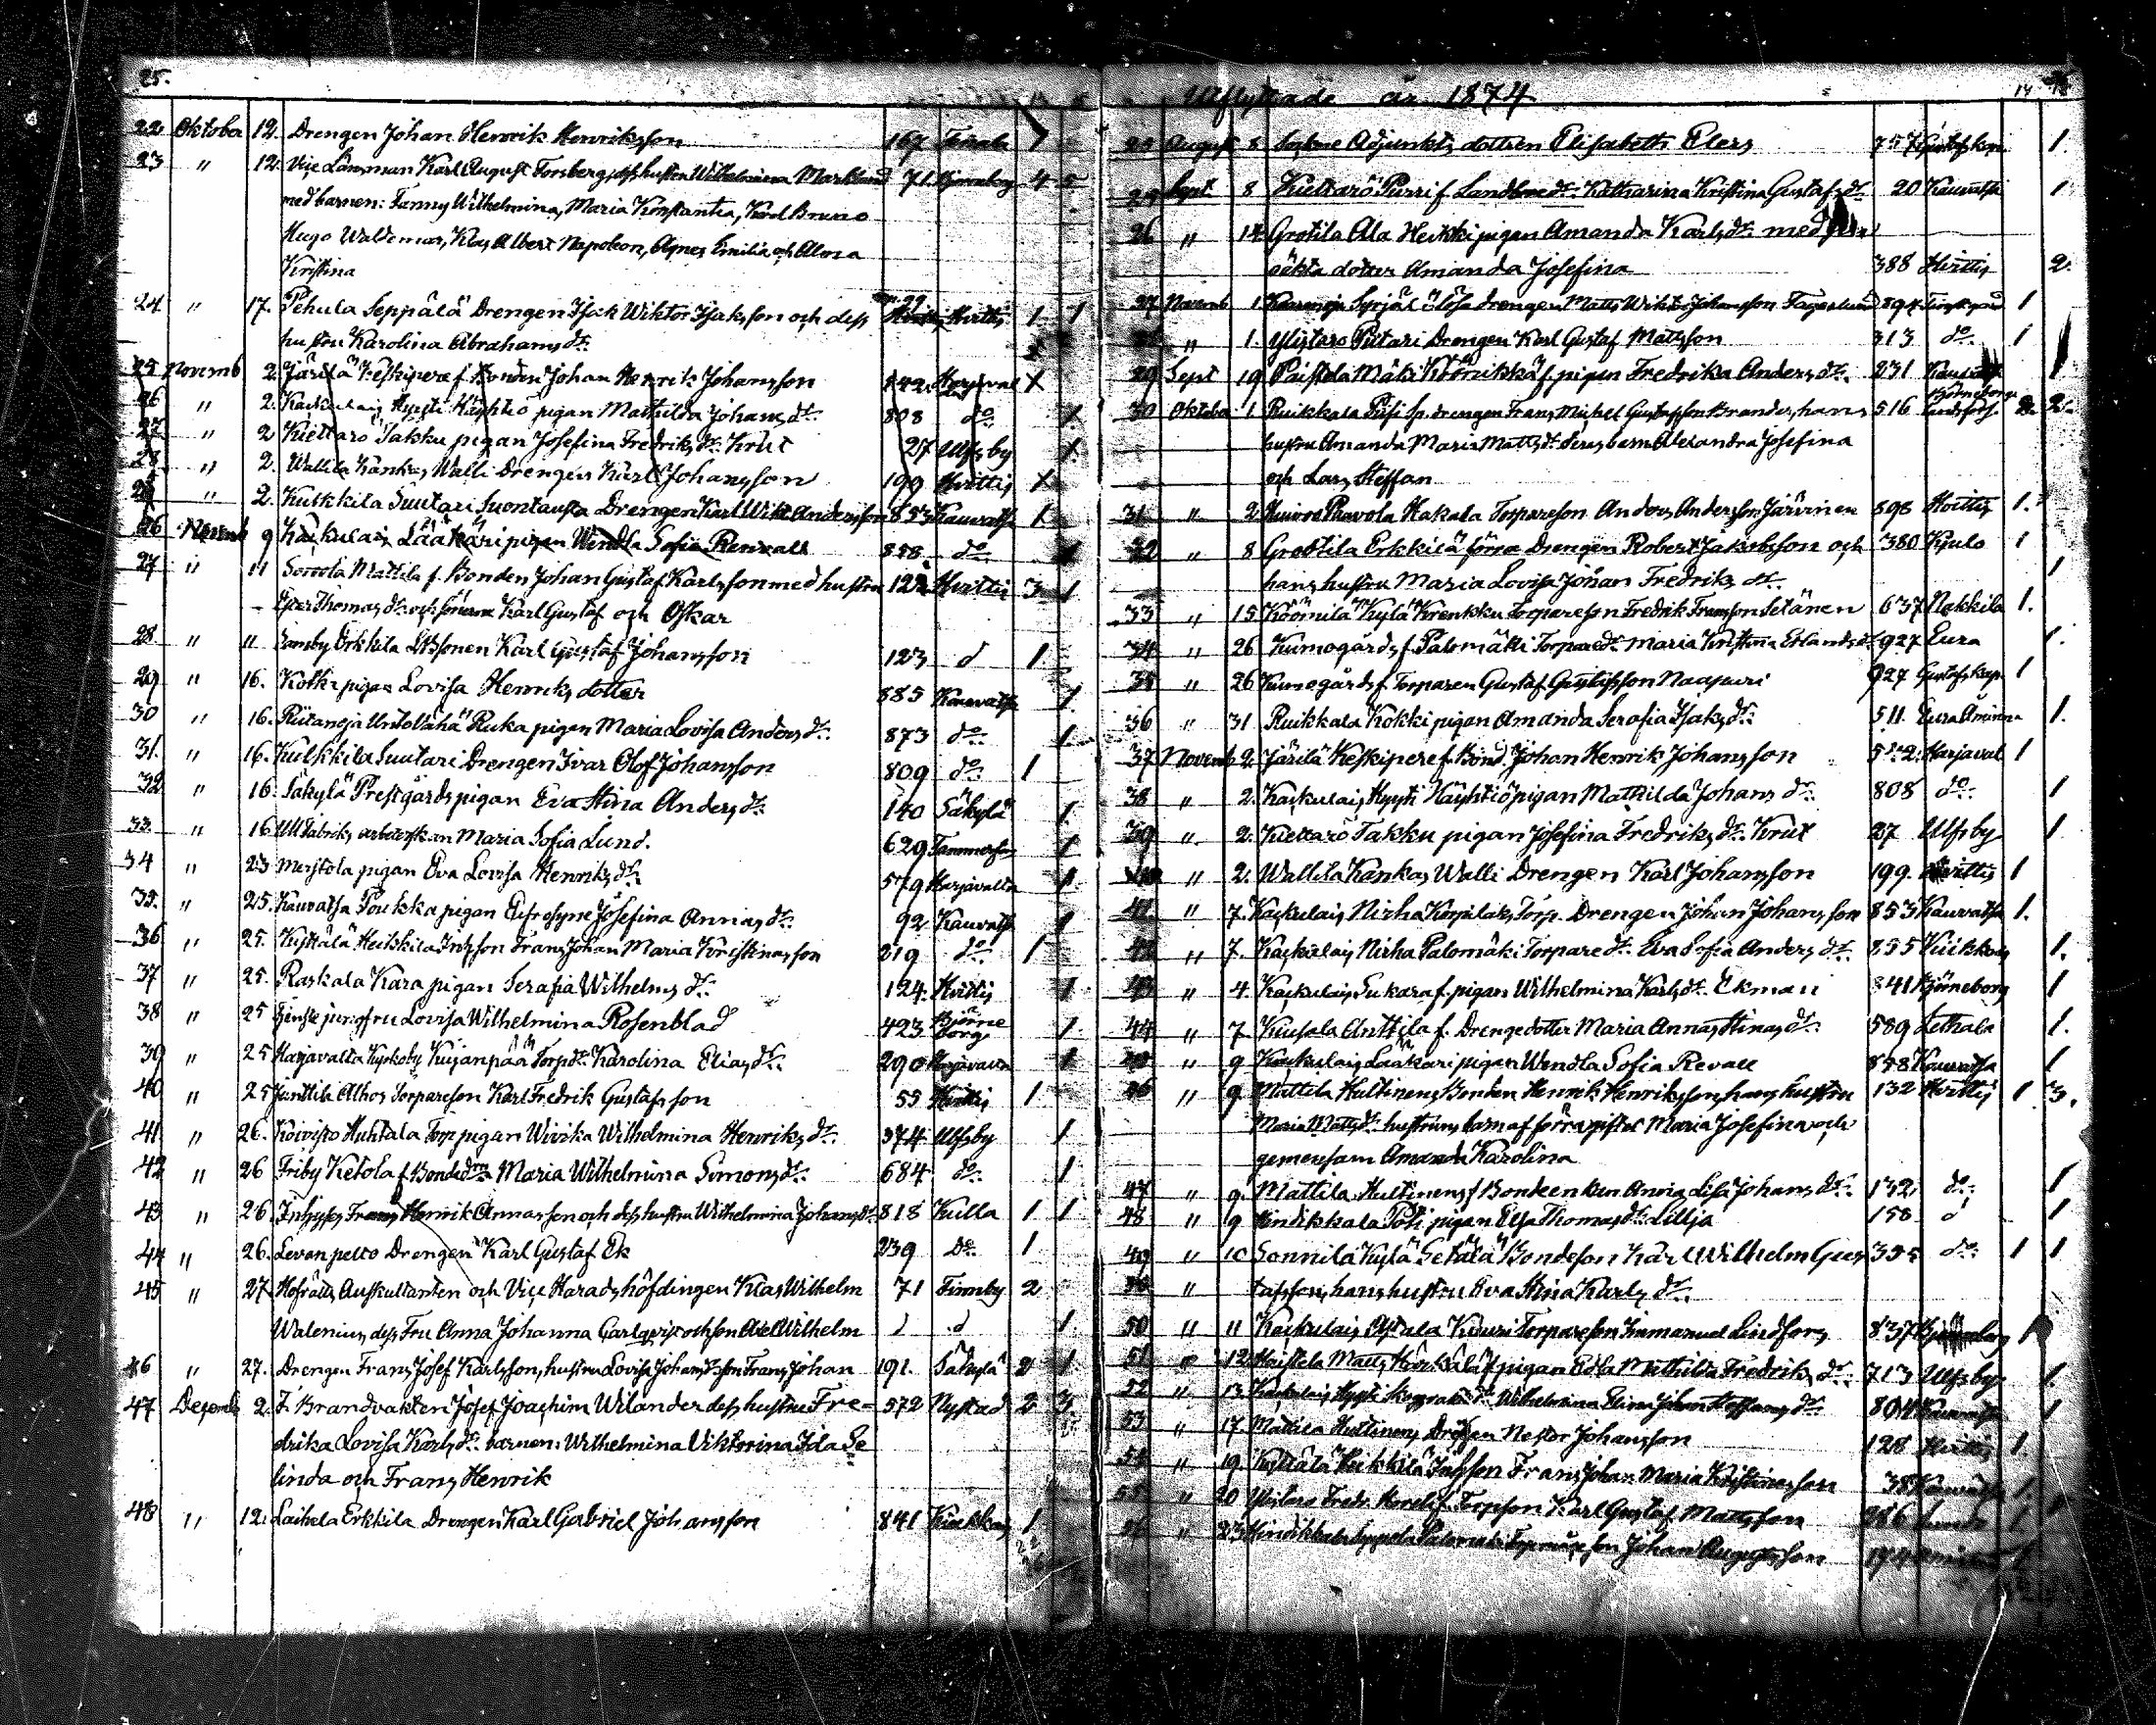 25.
22 Oktober 12. Drengen Johan Henrik Henriksson 167 1
23 " 12. Vice Länsman Karl August Forsberg, dess hustru Wilhelmina Marklund 71. Björneborg 4 5
med barnen: Fanny Wilhelmina, Maria Konstantia, Karl Bruno
Hugo Waldemar, Klas Albert Napoleon, Agnes Emilia och Alma
Kristina
24 " 17. Pehula Seppälä Drengen Isak Wiktor Isaksson och dess 22 Hvittis 1 1
hustru Karolina Abrahams dr.
25 Novemb 2. Järilä Keskipere f. Bonden Johan Henrik Johansson 542 Harjaval X
26 " 2. Kaskulais Hyysti Häyhtiö pigan Mathilda Johans dr. 808 do. 1
27 " 2 Kiettarö Takku pigan Josefina Fredriks dr. Krut 27 Ulfsby 1
28 " 2. Wallila Kankas Walli Drengen Karl Johansson 199 Hvittis X
29 " 2. Kulkkila Suutari Suontausta Drengen Karl Wikt. Andersson 853 Kauvatsa 1
26 Novemb 9 Kaskulais Lääkäri pigan Wendla Sofia Renvall 858 do. 1
27 " 11 Soroola Mattila f. Bonden Johan Gustaf Karlsson med hustru 122 Hvittis 3 1
Thomas dr. och sönerna Karl Gustaf och Oskar
28 " 11 Lamby Erkkila Karl Gustaf Johansson 123 d 1
29 " 16. Kotka pigan Lovisa Henriks dotter 885 Kauvatsa 1.
30 " 16. Riitanoja Untolähä Ruka pigan Maria Lovisa Anders dr. 873 do. 1
31. " 16. Kulkkila Suutari Drengen Ivar Olof Johansson 809 do. 1
32 " 16. Säkylä Prestgårds pigan Eva Stina Anders dr. 140 Säkylä 1
33. " 16 Ull fabriks arbeterskan Maria Sofia Lund. 629 Tammerfors 1
34 " 23 Meistola pigan Eva Lovisa Henriks dr. 579 Harjavalta 1
35. " 25. Kauvatsa Poukka pigan Eufrosyne Josefina Annas dr. 92 Kauvatsa 1
36 " 25. Kyttälä Heikkilä Frans Johan Maria Kristinasson 219 do. 1
37 " 25. Raskala Kara pigan Serafia Wilhelms dr. 124. Hvittis 1
38 " 25 fru Lovisa Wilhelmina Rosenblad 423 Björneborg 1
39 " 25 Harjavalta Kyrkoby Kujanpää Torp dr. Karolina Elias dr. 290 Harjavalta 1
40 " 25 Junttila Alhos Torpareson Karl Fredrik Gustafsson 55 Hvittis 1
41 " 26. Koivisto Huhtala Torp pigan Wivika Wilhelmina Henriks dr. 374 Ulfsby 1
42 " 26 Friby Ketola f. Bonde dr. Maria Wilhelmina Simons dr. 684 do. 1
43 " 26. Inhyses Frans Henrik Annasson och dess hustru Wilhelmina Johans dr. 818 Kulla 1 1
44 " 26. Levanpelto Drengen Karl Gustaf Ek 239 do. 1
45 " 27. Hofrätts Auskultanten och Vice Häradshöfdingen Klas Wilhelm 71 Finnby 2
Walenius, dess Fru Anna Johanna Carlqvist och son Axel Wilhelm d d 1
46 " 27. Drengen Frans Josef Karlsson, hustru Lovisa Johans dr. son Frans Johan 191. Säkylä 2 1
47 Decemb 2. F. Brandvakten Josef Joachim Wilander dess hustru Fre- 572 Nystad 2 3
drika Lovisa Karls dr. barnen: Wilhelmina Viktorina Ida Se
linda och Frans Henrik
48 " 12. Laihela Erkkila Drengen Karl Gabriel Johansson 841 Kiukkais 1
Utflyttade år 1874
25 August 8 Sockne Adjunkts dottren Elisabeth Elers 757 Gustafskyn 1.
Sept 8 Kiettarö Purri f. Landbonde dr. Katharina Kristina Gustafs dr. 20 Kauvatsa 1
26 " 14. Grotila Ala Heikki pigan Amanda Karls dr. med sin
oäkta dotter Amanda Josefina 388 Hvittis 2.
27 Novemb 1. Drengen Matts Wiktor Johansson Fagerlund 894 1
" 1. Ylistaro Piitari Drengen Karl Gustaf Mattsson 313 do. 1
29 Sept 19 Paistila Mäki f. pigan Fredrika Anders dr. 231 1
30 Oktober 1 Ruikkala Päsi Sp. drengen Frans Michel Gustafsson Brander, hans 516 Björneborgs landsförs. 2. 2.
hustru Amanda Maria Matts dr. deras barn Alexandra Josefina
och Lars Steffan
31 " 2 Paavola Hakala Torpareson Anders Andersson Järvinen 598 Hvittis 1.
32 " 8 Grotila Erkkilä förra Drengen Robert Jakobsson och 380 Kjulo 1
hans hustru Maria Lovisa Johan Fredriks dr. 1
33 " 15. Köömilä Kylä Krenkku Torpareson Fredrik Fransson Setänen 637 Nakkila 1.
34 " 26 Kumogårds f. Palomäki Torpare dr. Maria Kristina Erlands dr. 927 Eura 1.
35 " 26 Kumogårds f. Torparen Gustaf Gustafsson Naapuri 927 Gustafskyn 1
36 " 31 Ruikkala Kokki pigan Amanda Serafia Isaks dr. 511. Euraåminne 1.
37 Novemb 2. Järilä Keskipere f. Bond. Johan Henrik Johansson 542. Harjaval 1
38 " 2. Kaskulais Hyysti Häyhtiö pigan Mathilda Johans dr. 808 do. 1
39 " 2. Kiettarö Takku pigan Josefina Fredriks dr. Krut 27 Ulfsby 1
" 2. Wallila Kankas Walli Drengen Karl Johansson 199. Hvittis 1
41. " 7. Kaskulais Nirha Karjalaks Torp. Drengen Johan Johansson 853 Kauvatsa 1.
42 " 7. Kaskulais Nirha Palomäki Torpare dr. Eva Sofia Anders dr. 855 Kiukkais 1.
43 " 4. Kaskulais Sukara f. pigan Wilhelmina Karls dr. Ekman 841 Björneborg 1
44 " 7 Kuusala Anttila f. Drenge dotter Maria Annas Stinas dr. 589 Lethala 1.
" 9 Kaskulais Lääkäri pigan Wendla Sofia Revall 858 Kauvatsa 1
46 " 9. Mattila Hultinens Bonden Henrik Henriksson, hans hustru 132 Hvittis 1 3.
Maria Matts dr. hustruns barn af förra giftet Maria Josefina och
gemensam Amanda Karolina
47 " 9. Mattila Hultinens f. Bond Lisa Johans dr. 132. do. 1
48 " 9 Hindikkala Poti pigan Elsa Thomas dr. Lillja 158 d 1
49 " 10 Sonnila Kylä Setälä Bondeson Karl Wilhelm Gus 355 do. 1 1
" tafsson, hans hustru Eva Stina Karls dr.
50 " 11 Kaskulais Knuuri Torpareson Immanuel Lindfors 837 1
51 " 12. Haistila Matts f. pigan Edla Mathilda Fredriks dr. 713 Ulfsby 1.
52 " 13. Kaskulais Hyysti Wilhelmina Johan Steffans dr. 804 Kauvatsa 1
53 " 17. Mattila Hultinens Drengen Nestor Johansson 128 Hvittis 1.
54 " 19. Kyttälä Heikkilä Frans Johan Maria Kristinasson 38 Kauvatsa 1.
55 " 20 Ylistaro Torpson Karl Gustaf Mattsson 286 1
" 23 Hindikkala Palomäki Johan Augustsson 174 1